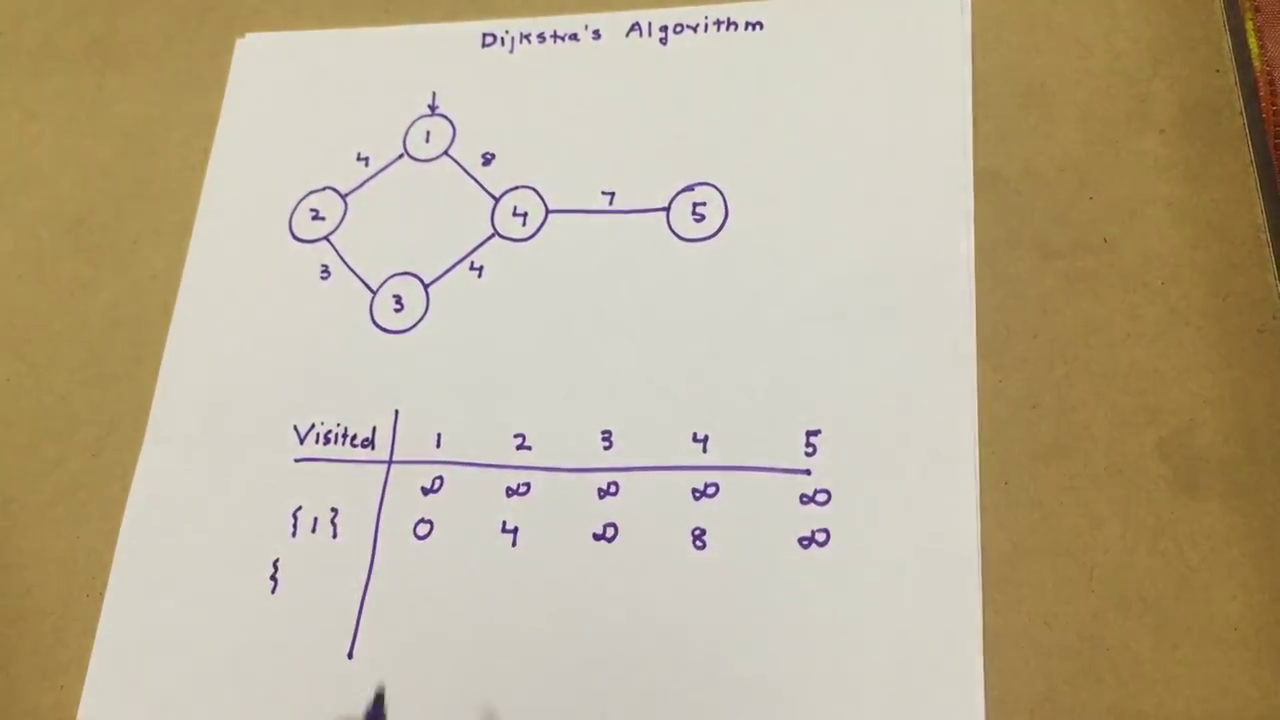 Dijkstra's Algorithm
1
4 8
2 4 7 5
3 4
3
Visited 1 2 3 4 5
∞ ∞ ∞ ∞ ∞
{1} 0 4 ∞ 8 ∞
{